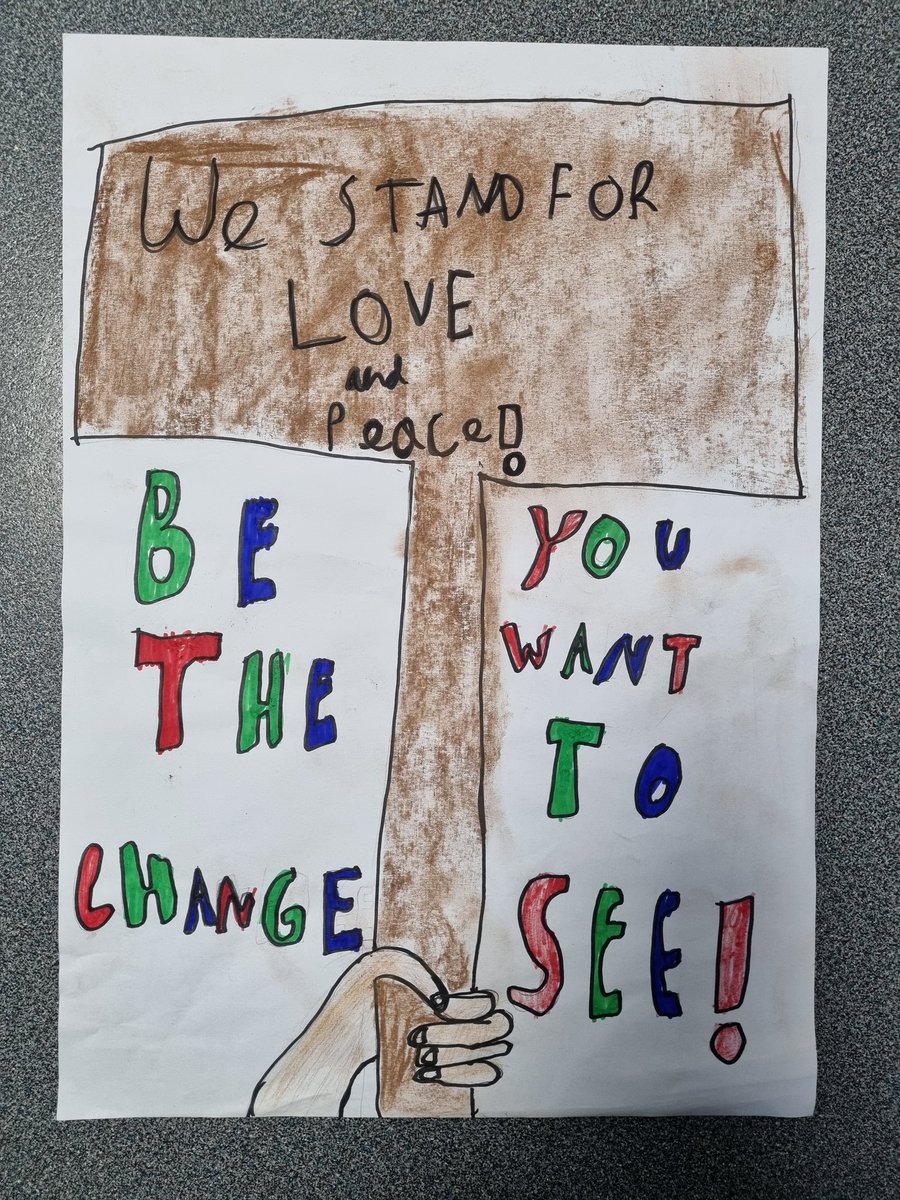 We STAND FOR
LOVE
and
Peace!
BE
THE
CHANGE
YOU
WANT
TO
SEE!